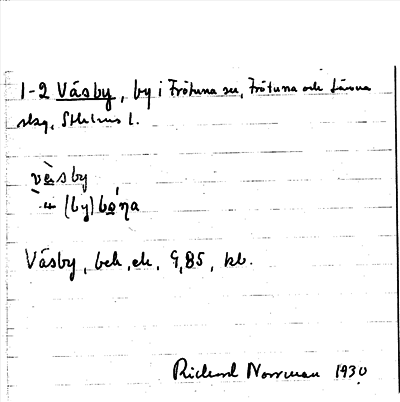 1-2 Väsby, by i Frötuna sn, Frötuna och Länna
skg, Sthlms l.
vä̀sby
(by)bo̱ŋa
Väsby, beb, ek, 9,85, kb.
Richard Norrman 1930